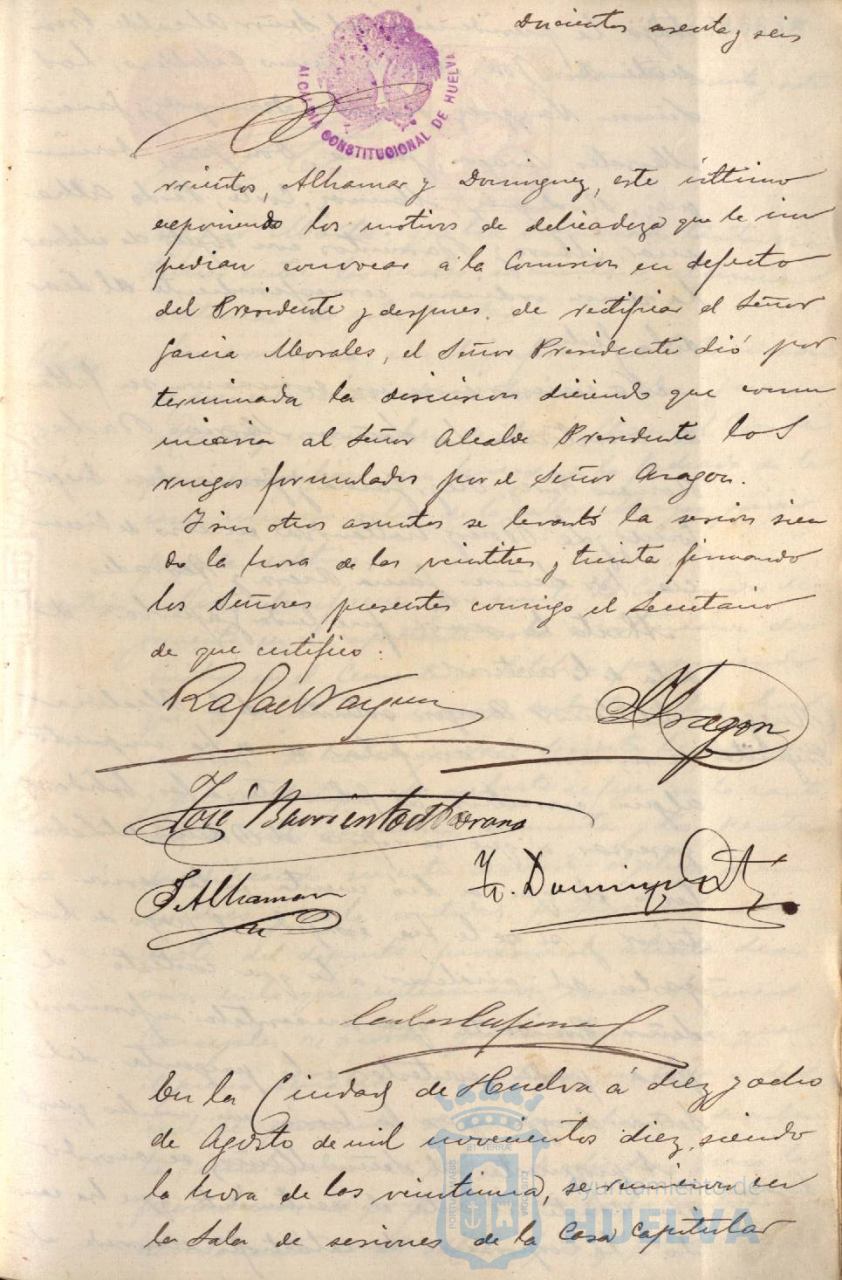 Ducientos asenta y seis
ALCALDIA CONSTITUCIONAL DE HUELVA
rrientos, Alhamar y Dominguez, este último
exponiendo los motivos de delicadeza que le im
pedian convocar á la Comision en defecto
del Presidente y despues de rectificar el Señor
Garcia Morales, el Señor Presidente dió por
terminada la discusion diciendo que comu
nicaria al Señor Alcalde Presidente los
ruegos formulados por el Señor Aragon.
Y sin otros asuntos se levantó la sesion sien
do la hora de las veintitres y treinta firmando
los Señores presentes conmigo el Secretario
de que certifico.
Rafael Vazquez
Aragon
José Barrientos
J. Alhamar
En la Ciudad de Huelva á diez y ocho
de Agosto de mil novecientos diez, siendo
la hora de las veintiuna, se reunieron en
la Sala de sesiones de la Casa Capitular
Ayuntamiento de
HUELVA